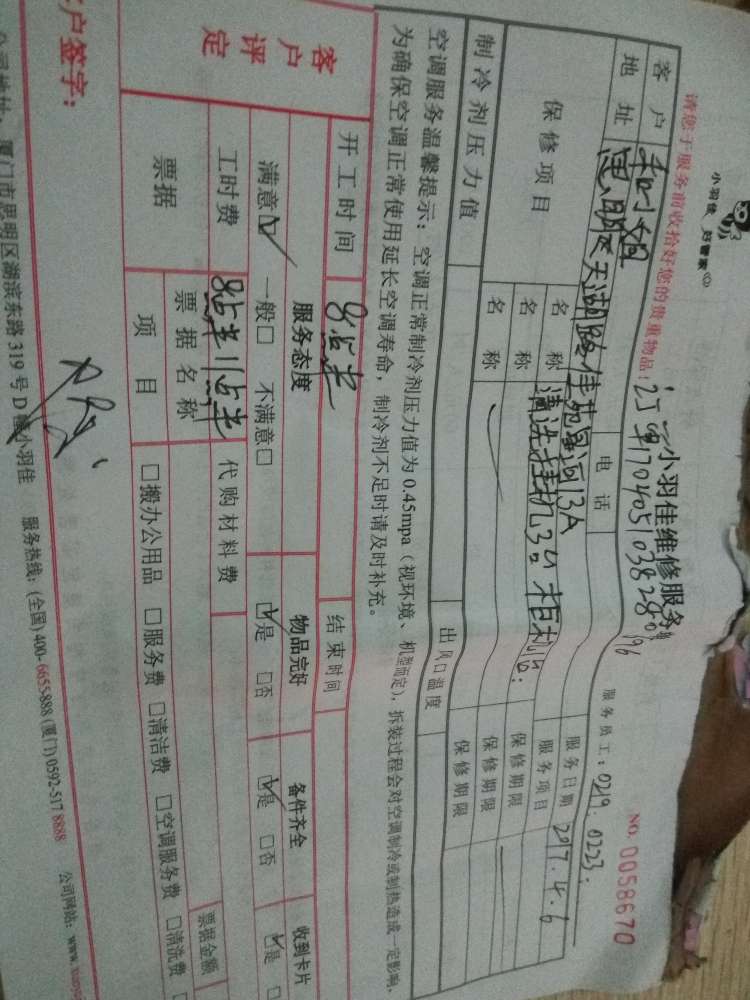 小羽佳 好管家
小羽佳维修服务单
NO. 0058670
请您于服务前收拾好您的贵重物品! 订单170405103828096
服务员工: 0219. 0223.
客户 电话 服务日期 2017.4.6
地址 思明区天湖路佳苑星河13A 服务项目
保修项目 名称 清洗挂机3台 柜机1台. 保修期限
名称 保修期限
名称 保修期限
制冷剂压力值 出风口温度
空调服务温馨提示: 空调正常制冷剂压力值为 0.45mpa (视环境、机型而定), 拆装过程会对空调制冷或制热造成一定影响,
为确保空调正常使用延长空调寿命, 制冷剂不足时请及时补充。
开工时间 8点半 结束时间
客户评定 服务态度 物品完好 备件齐全 收到卡片
满意☑ 一般□ 不满意□ ☑是 □否 ☑是 □否 ☑是 □
工时费 8点半 11点半 代购材料费
票据 票据名称 票据金额
项目 □搬办公用品 □服务费 □清洁费 □空调服务费 □清洗费 □
客户签字:
公司地址: 厦门市思明区湖滨东路 319 号 D 幢小羽佳 服务热线: (全国) 400-6655-888 (厦门) 0592-517 8888 公司网站: www.